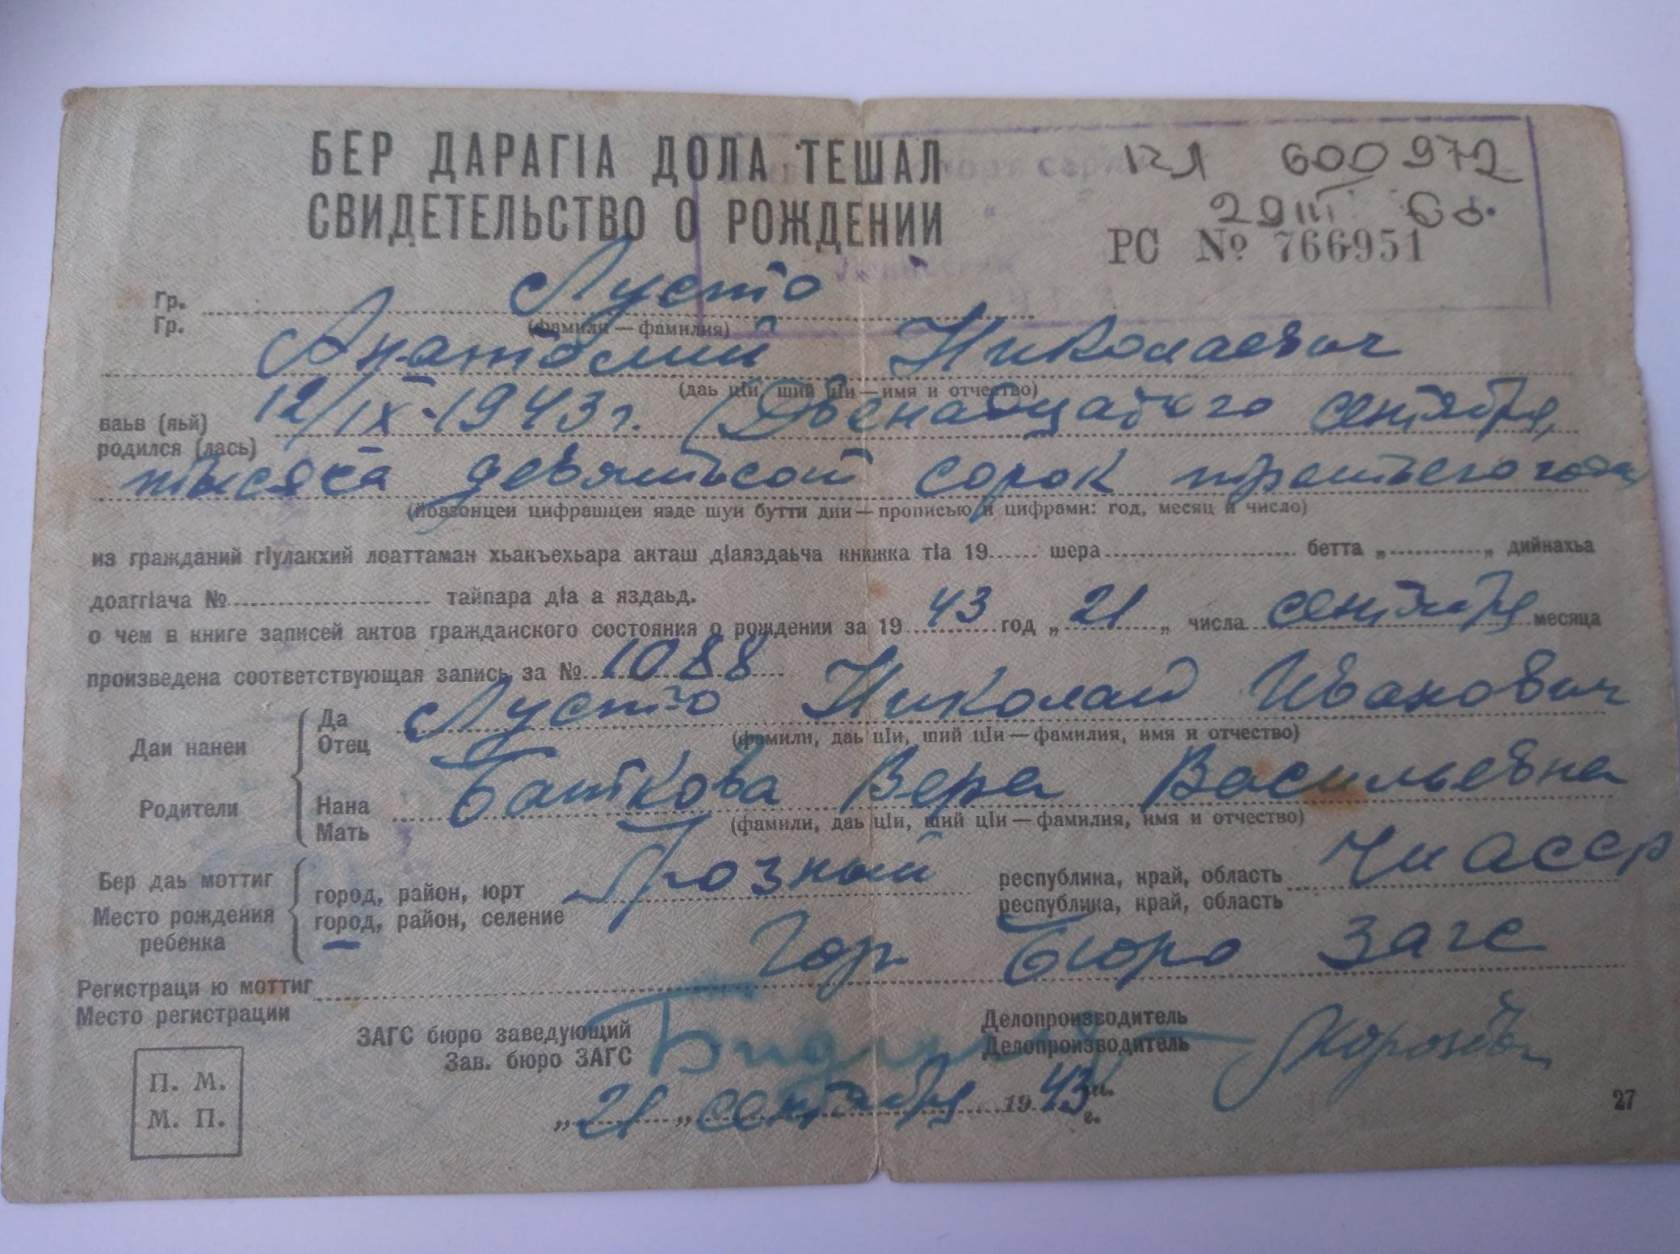 БЕР ДАРАГIА ДОЛА ТЕШАЛ
СВИДЕТЕЛЬСТВО О РОЖДЕНИИ
600972
29 III
РС № 766951
Гр. Лусто
Гр.
(фамили — фамилия)
Анатолий Николаевич
(даь цIи, ший цIи — имя и отчество)
ваьв (яьй)
родился (лась)
12/IX-1943г. (Двенадцатого сентября,
тысяча девятьсот сорок третьего года
(йоазонцеи цифрашцеи язде шуи бутти дии — прописью и цифрами: год, месяц и число)
из гражданий гIулакхий лоаттаман хьакъехьара акташ дIаяздаьча книжка тIа 19...... шера.................. бетта „............„ дийнахьа
доаггIача №.................. тайпара дIа а яздаьд.
о чем в книге записей актов гражданского состояния о рождении за 19 43 год „ 21 „ числа сентября месяца
произведена соответствующая запись за № 1088
Даи нанеи
Родители
Да
Отец
Лусто Николай Иванович
(фамили, даь цIи, ший цIи — фамилия, имя и отчество)
Нана
Мать
Баткова Вера Васильевна
(фамили, даь цIи, ший цIи — фамилия, имя и отчество)
Бер даь моттиг
Место рождения
ребенка
город, район, юрт
город, район, селение
Грозный
республика, край, область
республика, край, область
ЧИАССР
Регистраци ю моттиг
Место регистрации
Гор Бюро Загс
ЗАГС бюро заведующий
Зав. бюро ЗАГС
Делопроизводитель
Делопроизводитель
„ 21 „ сентября 19 43 г.
П. М.
М. П.
27